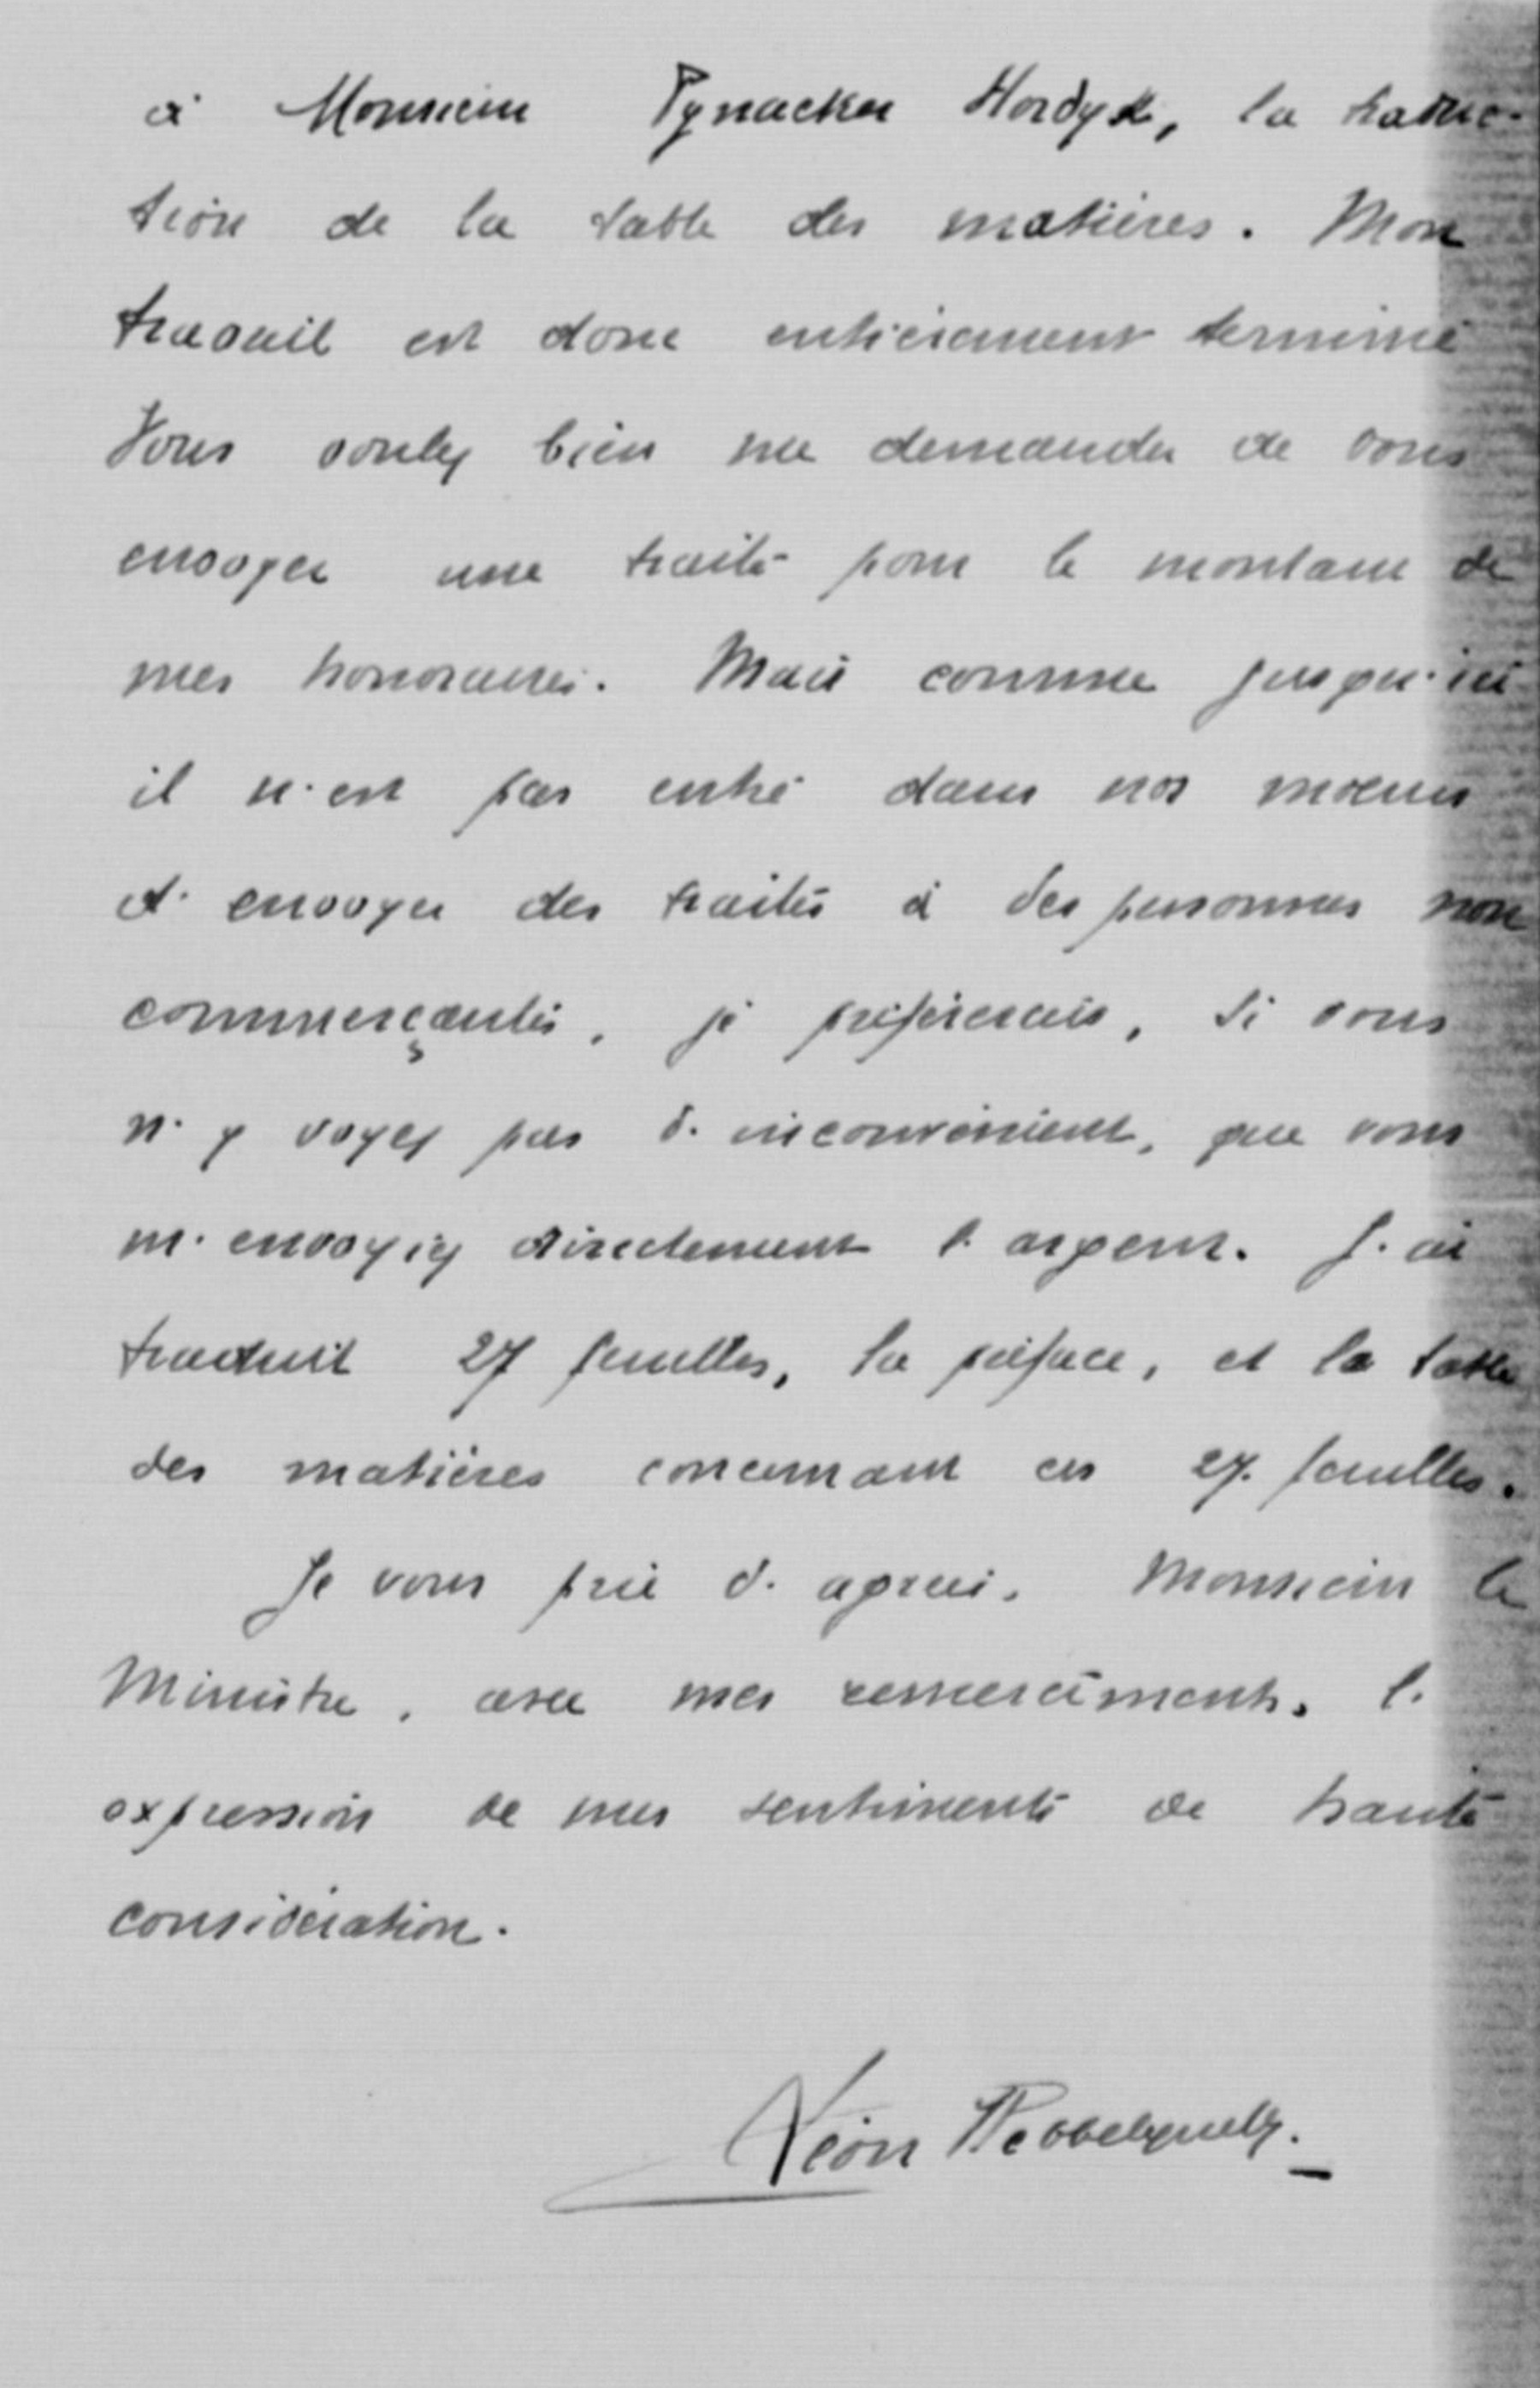 à Monsieur Pynacker Hordyk, la traduc-
tion de la table des matières. Mon
travail est donc entièrement terminé
Vous voulez bien me demander de vous
envoyer une traite pour le montant de
mes honoraires. Mais comme jusqu'ici
il n'est pas entré dans nos moeurs
d'envoyer des traites à des personnes non
commerçantes, je préférerais, si vous
n'y voyez pas d'inconvénient, que vous
m'envoyiez directement l'argent. J'ai
traduit 27 feuilles, la préface, et la table
des matières concernant ces 27 feuilles.
Je vous prie d'agréer, Monsieur le
Ministre, avec mes remercîments, l'
expression de mes sentiments de haute
considération.
Léon